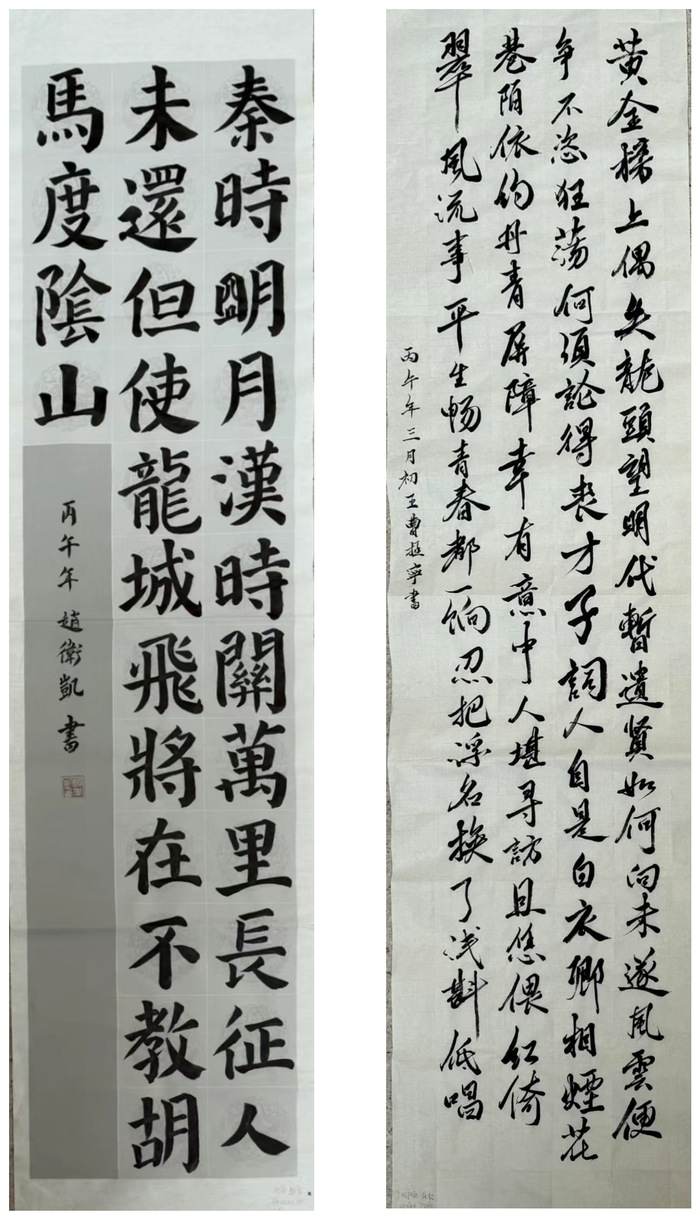 秦時朙月漢時關萬里長征人
未還但使龍城飛將在不教胡
馬度陰山
丙午年 趙衛凱 書
黄金榜上偶失龍頭望明代暫遺賢如何向未遂風雲便
争不恣狂蕩何須論得喪才子詞人自是白衣卿相煙花
巷陌依約丹青屏障幸有意中人堪尋訪且恁偎紅倚
翠風流事平生暢青春都一餉忍把浮名換了浅斟低唱
丙午年三月初王曹寧書